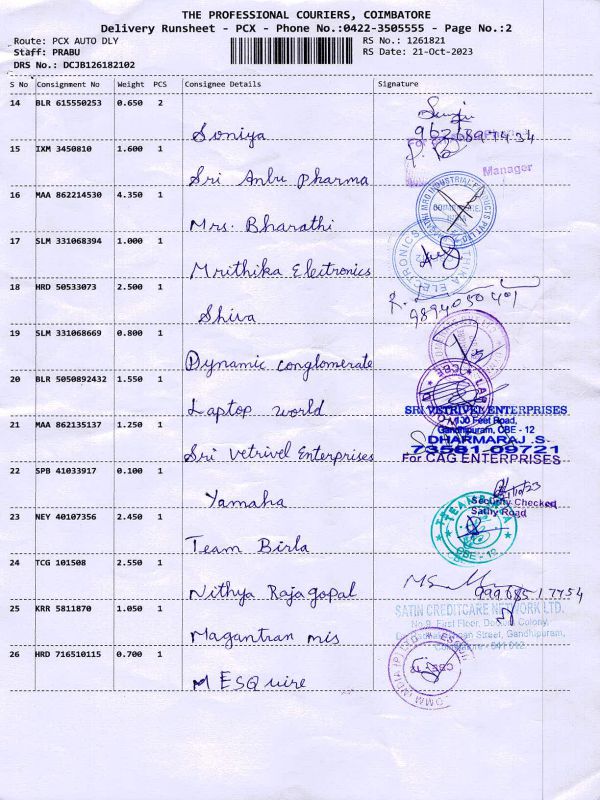 THE PROFESSIONAL COURIERS, COIMBATORE
Delivery Runsheet - PCX - Phone No.:0422-3505555 - Page No.:2
Route: PCX AUTO DLY RS No.: 1261821
Staff: PRABU RS Date: 21-Oct-2023
DRS No.: DCJB126182102
S No Consignment No Weight PCS Consignee Details Signature
14 BLR 615550253 0.650 2
Soniya
15 IXM 3450810 1.600 1
Manager
Sri Anbu Pharma
16 MAA 862214530 4.350 1
Mrs. Bharathi
17 SLM 331068394 1.000 1
Mrithika Electronics
18 HRD 50533073 2.500 1
9894050401
Shiva
19 SLM 331068669 0.800 1
Dynamic conglomerate
20 BLR 5050892432 1.550 1
Laptop world
SRI VETRIVEL ENTERPRISES
100 Feet Road,
21 MAA 862135137 1.250 1
Gandhipuram, CBE - 12
DHARMARAJ .S
73581-09721
Sri Vetrivel Enterprises
For CAG ENTERPRISES
22 SPB 41033917 0.100 1
Yamaha
Security Checked
Sathy Road
23 NEY 40107356 2.450 1
TEAM BIRLA
CBE - 12
Team Birla
24 TCG 101508 2.550 1
Nithya Rajagopal
25 KRR 5811870 1.050 1
SATIN CREDITCARE NETWORK LTD.
No.9, First Floor,
Street, Gandhipuram,
Magantran mis
26 HRD 716510115 0.700 1
M ESQuire